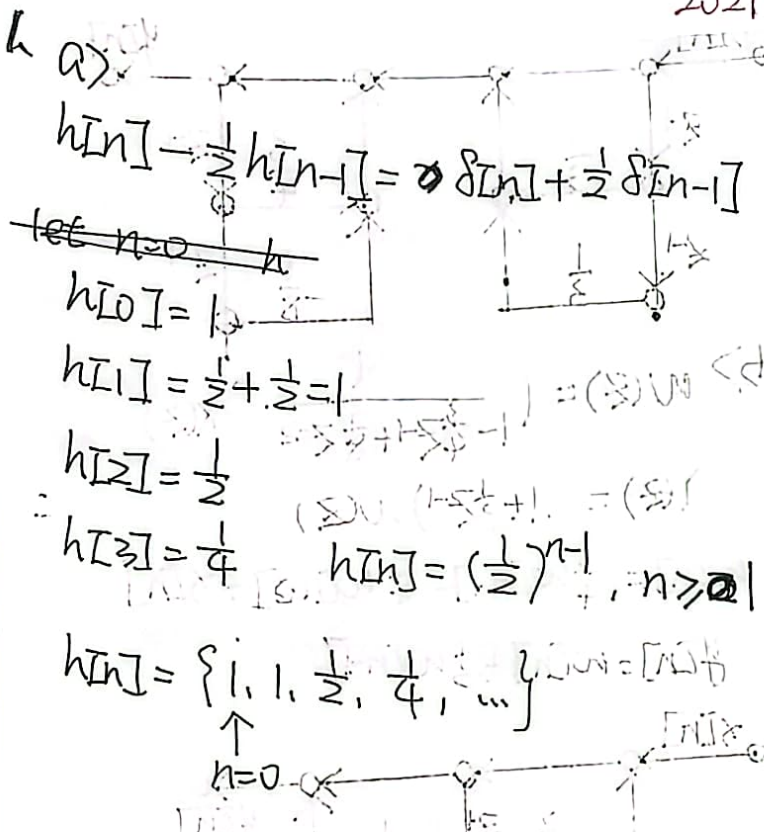 2021
a>
h[n] - 1/2 h[n-1] = δ[n] + 1/2 δ[n-1]
let n=0 h
h[0] = 1
h[1] = 1/2 + 1/2 = 1
h[2] = 1/2
h[3] = 1/4 h[n] = (1/2)^{n-1}, n≥1
h[n] = {1, 1, 1/2, 1/4, ...}
↑
n=0